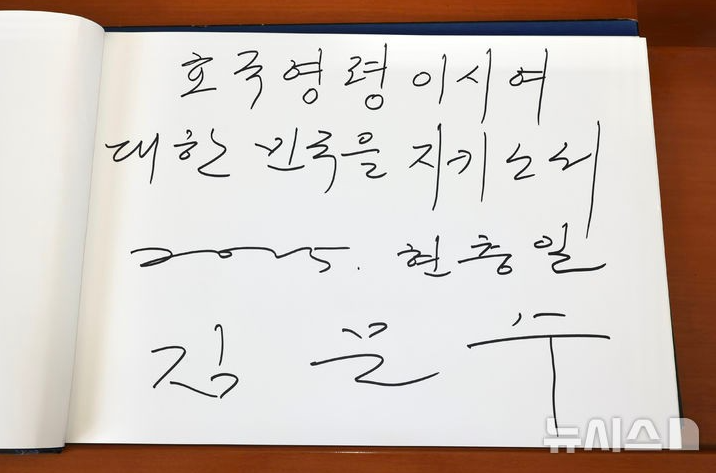 호국영령이시여
대한민국을 지키소서
2025. 현충일
김문수
뉴시스